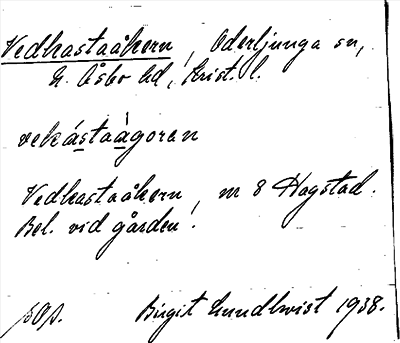 Vedhastaåkern, Oderljunga sn,
N. Åsbo hd, Krist. l.
vekástaàgoran
Vedhastaåkern, m 8 Hagstad.
Bel. vid gården.
Birgit Lundkvist 1938.